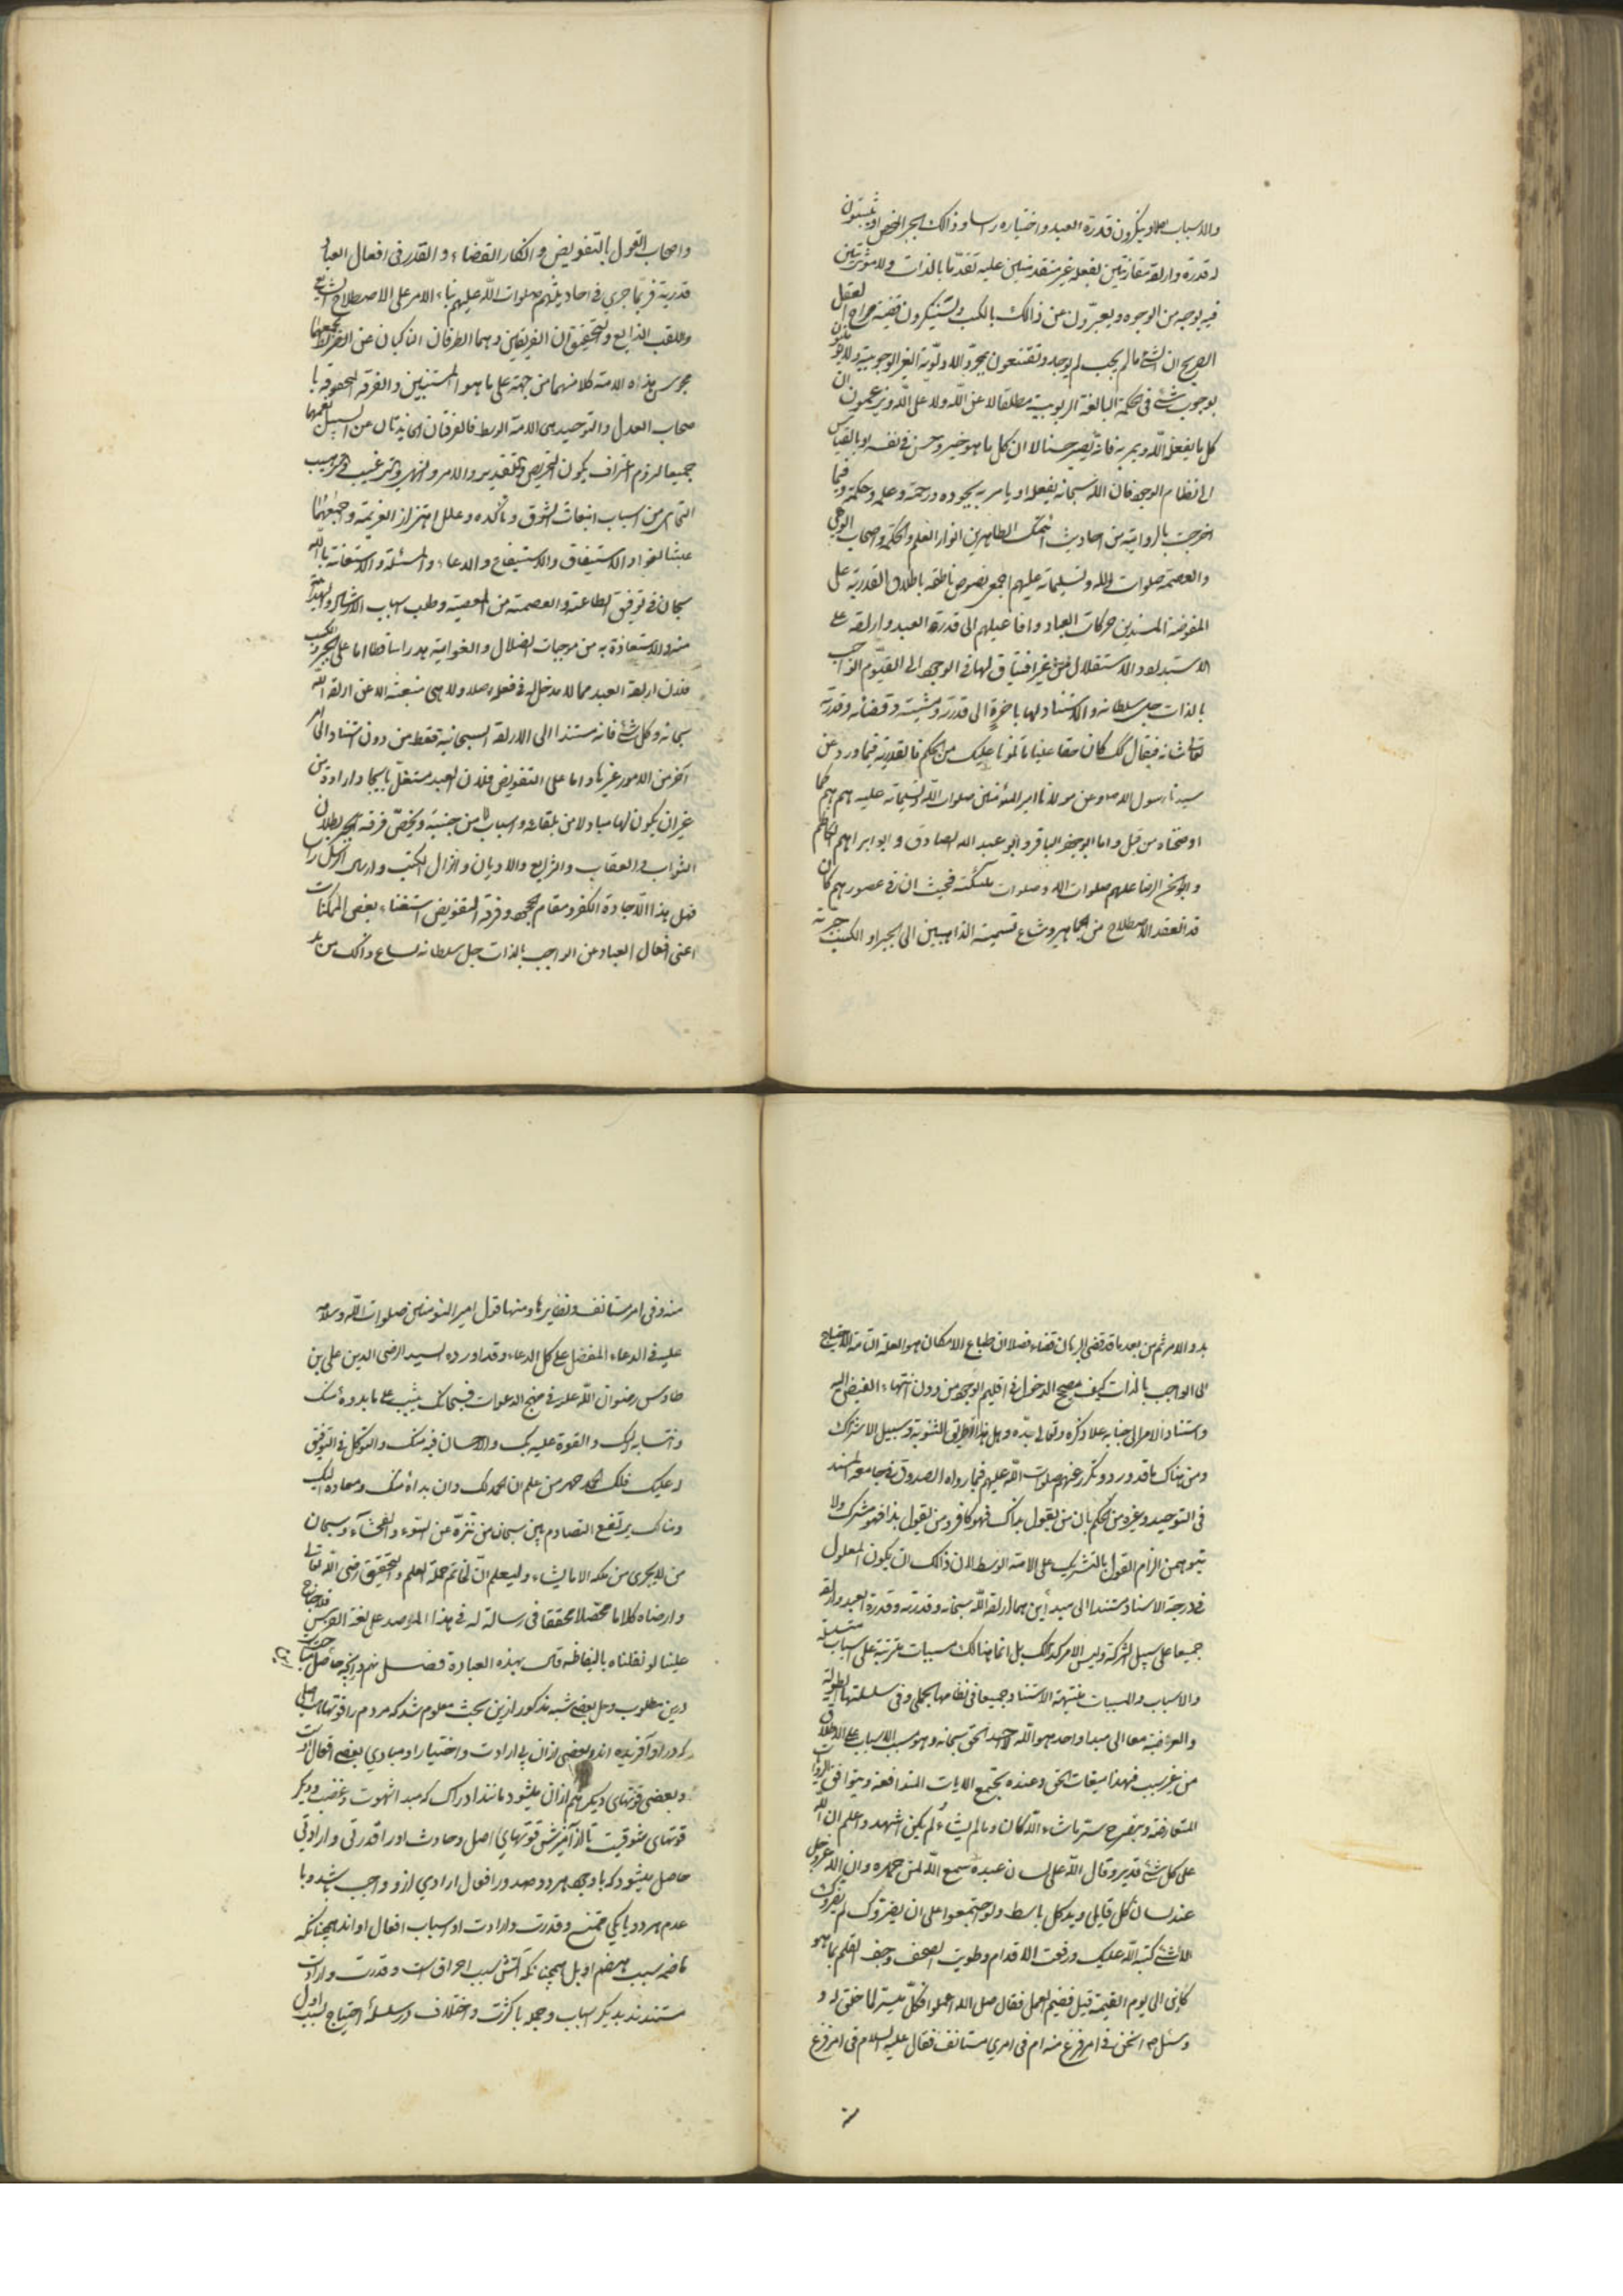 والاسباب اصلا وينكرون قدرة العبد واختياره راسا وذلك الجبر المحض او يثبتون
له قدرة وارادة مقارنتين بفعله غير متقدمتين عليه تقدما بالذات ولا مؤثرتين
فيه بوجه من الوجوه ويعبرون عن ذلك بالكسب ويستنكرون قضية صراح العقل
الصريح ان الشئ ما لم يجب لم يوجد ويقتنعون بمجرد الاولوية الغير الوجوبية ولا
بوجوب شئ في الحكمة البالغة الربوبية مطلقا لا عن الله ولا على الله ويزعمون ان
كل ما يفعل الله ويامر به فانه يصير حسنا لا ان كل ما هو خير وحسن في نفسه او بالقياس
الى نظام الوجود فان الله سبحانه يفعله او يامر به بجوده ورحمته وعلمه وحكمته وفيما
اخرجت بالرواية من احاديث ائمتنا الطاهرين انوار العلم والحكمة واصحاب الوحي
والعصمة صلوات الله وتسليماته عليهم اجمعين نصوص ناطقة باطلاق القدرية على
المفوضة المسندين حركات العباد وافاعيلهم الى قدرة العبد وارادته على
الاستبداد والاستقلال من غير افتياق لها في الوجود الى القيوم الواجب
بالذات جل سلطانه والاستناد لها باخرة الى قدرته ومشيته وقضائه وقدرته
تعالى شانه فيقال لك كان حقا علينا ما تلونا عليك من الحكم فالقدرية فيما ورد عن
سيدنا رسول الله ص وعن مولانا امير المؤمنين صلوات الله وتسليماته عليهم هم كما
اوضحناه من قبل واما ابو جعفر الباقر وابو عبد الله الصادق وابو ابراهيم الكاظم
وابو الحسن الرضا عليهم صلوات الله وصلوات ملئكته فحيث ان في عصورهم كان
قد انعقد الاصطلاح من الجماهير وشاع تسمية الذاهبين الى الجبر او الكسب جبرية
واصحاب القول بالتفويض وانكار القضاء والقدر في افعال العباد
قدرية فربما جرى في احاديثهم صلوات الله عليهم بناء الامر على الاصطلاح الشايع
واللقب الذايع والتحقيق ان الفريقين وهما الطرفان الناكبان عن الصراط بجميعهما
مجوس هذه الامة كلا منهما من جهة على ما هو المستبين والفرقة المحقوقة با
صحاب العدل والتوحيد هي الامة الوسط فالفرقتان الحايدتان عن السبيل نعمهما
جميعا لزوم اعتراف بكون التحريص والتقدير والامر والنهي والترغيب والترهيب
التي هي من اسباب انبعاث الشوق وتاكده وعلل اهتزاز العزيمة واجتماعهما
عبثا لغوا والاستيفاق والاستيفاح والدعاء والمسئلة والاستعانة بالله
سبحانه في توفيق الطاعة والعصمة من المعصية وطلب اسباب الارشاد والهداية
منه والاستعاذة به من موجبات الضلال والغواية هدرا ساقطا اما على الجبر والكسب
فلان ارادة العبد مما لا مدخل له في فعله اصلا ولا هي منبعثة الا عن ارادة الله
سبحانه وكل شئ فانه مستند الى الارادة السبحانية فقط من دون استناد الى امر
آخر من الامور غيرها واما على التفويض فلان العبد مستقل بايجاد ارادته من
غير ان يكون لها مباد لا من تلقائه واسباب لا من جنسية ويختص فرقة الجبر بطلان
الثواب والعقاب والشرايع والاديان وانزال الكتب وارسال الرسل راسا
فهل هذا الا جادة الكفر ومقام الجحود وفرقة التفويض استغناء بعض الممكنات
اعني افعال العباد عن الواجب بالذات جل سلطانه لساغ ذلك من
بدو الامر ثم من بعد ما قد قضى البرهان قضاء فصلا ان طباع الامكان هو العلة التامة للاحتياج
الى الواجب بالذات كيف يصح الدخول في اقليم الوجود من دون انتهاء الفيض اليه
واستناد الامر الى جنابه علا ذكره وتعالى جده وهل هذا الا طريق الثنوية وسبيل الاشراك
ومن هناك ما قد ورد وتكرر عنهم صلوات الله عليهم فيما رواه الصدوق في جامعه المسند
في التوحيد وغيره من الحكم بان من يقول بذاك فهو كافر ومن يقول بهذا فهو مشرك ولا
يتوهمن الزام القول بالتشريك على الامة الوسط لان ذلك ان يكون المعلول
في درجة الاسناد مستندا الى مبدأين هما ارادة الله سبحانه وقدرته وقدرة العبد وارادته
جميعا على سبيل الشركة وليس الامر كذلك بل انما هنالك مسببات مترتبة على اسباب متسلسلة
والاسباب والمسببات منتهية الاستناد جميعا في نظامها الجملي وفي سلسلتها الطولية
والعرضية معا الى مبدا واحد هو الله الاحد الحق سبحانه وهو مسبب الاسباب على الاطلاق
من غير سبب فهذا ميقات الحق وعنده تجتمع الايات المتدافعة ويتوافق الروايات
المتعارضة وينصرح سر ما شاء الله كان وما لم يشاء لم يكن اشهد واعلم ان الله
على كل شئ قدير وقال الله على لسان عبده سمع الله لمن حمده وان الله عز وجل
عند لسان كل قايل ويد كل باسط ولو اجتمعوا على ان يضروك لم يضروك
الا بشئ كتبه الله عليك ورفعت الاقدام وطويت الصحف وجف القلم بما هو
كاين الى يوم القيمة قيل ففيم العمل فقال صلى الله اعملوا فكل ميسر لما خلق له و
وسئل ص انحن في امر فرغ منه ام في امر مستانف فقال عليه السلام في امر فرغ
منه وفي امر مستانف ونظايرها ومنها قول امير المؤمنين صلوات الله وسلامه
عليه في الدعاء المفضل على كل الدعاء وقد اورده السيد الرضي الدين علي بن
طاوس رضوان الله عليه في مهج الدعوات فسبحانك تثيب على ما بدوه منك
وانتسابه اليك والقوة عليه بك والاحسان فيه منك والتوكل في التوفيق
له عليك فلك الحمد حمد من علم ان الحمد لك وان بداه منك ومعاده اليك
وهناك يرتفع التصادم بين سبحان من تنزه عن السوء والفحشآء وسبحان
من لا يجري في ملكه الا ما يشاء وليعلم ان لخاتم حملة العلم والتحقيق رضى الله تعالى
وارضاه كلاما محصلا محققا في رسالة له في هذا المقصد على لغة الفرس فلا جناح
علينا لو نقلناه بالفاظه قال بهذه العبارة فصل نهم در آنچه حاصل
درين مطلوب وحل بعضى شبه مذكور ازين بحث معلوم شد كه مردم را قوتهاست اصلى
كه در او آفريده اند وبعضى ازان بى ارادت واختيار او مبادى بعضى افعال است
وبعضى قوتهاى ديگر هم ازان ميشود مانند ادراك كه مبدا شهوت وغضب وديگر
قوتهاى شوقيت تا از آميزش قوتهاى اصل وحادث او را قدرتى وارادتى
حاصل ميشود كه باوجود هر دو صدور افعال ارادى ازو واجب باشد وبا
عدم هر دو يا يكى ممتنع وقدرت وارادت او اسباب افعال او اند همچنانكه
هاضمه سبب هضم او بل همچنانكه آتش سبب احراق است وقدرت وارادت
مستندند بديگر اسباب وجمله با كثرت واختلاف در سلسلۀ احتياج بسبب اول